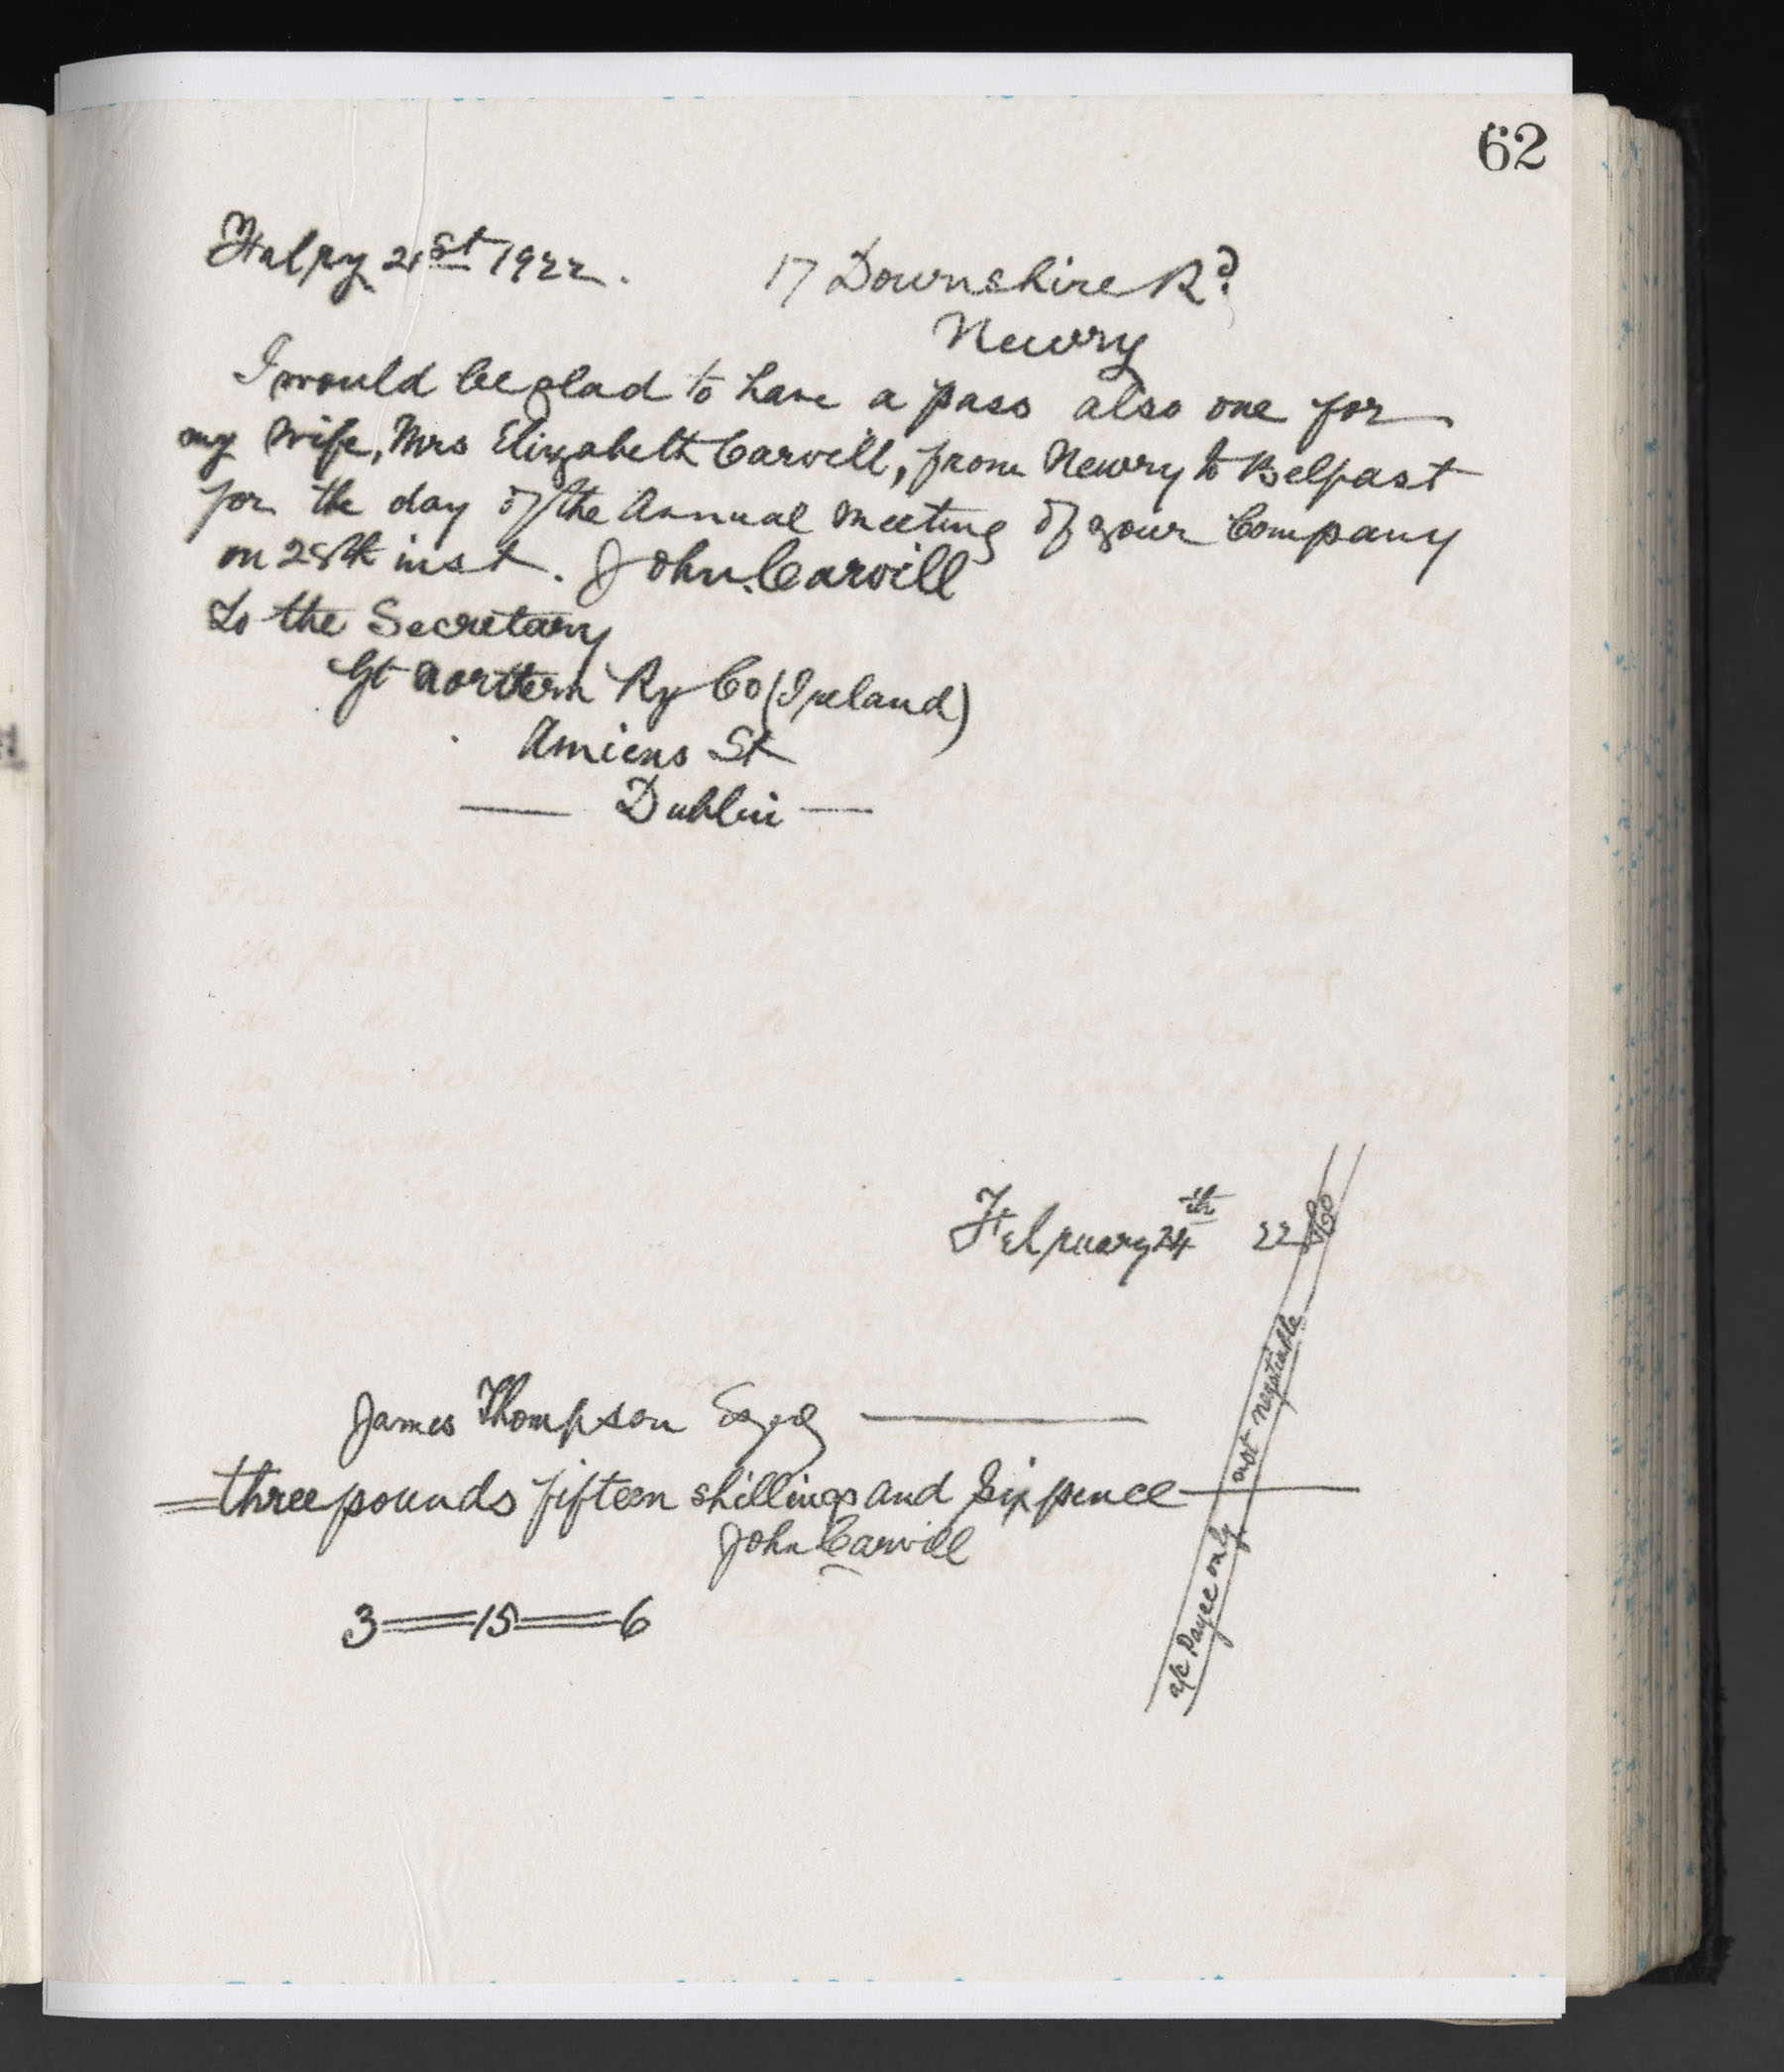 62
Febry 21st 1922. 17 Downshire Rd
Newry
I would be glad to have a pass also one for
my wife, Mrs Elizabeth Carvill, from Newry to Belfast
for the day of the Annual Meeting of your Company
on 28th inst. John Carvill
To the Secretary
Gt Northern Ry Co (Ireland)
Amiens St
Dublin
February 24th 22
& Co
not negotiable
a/c Payee only
James Thompson Esqre
three pounds fifteen shillings and Sixpence
John Carvill
3 = 15 = 6